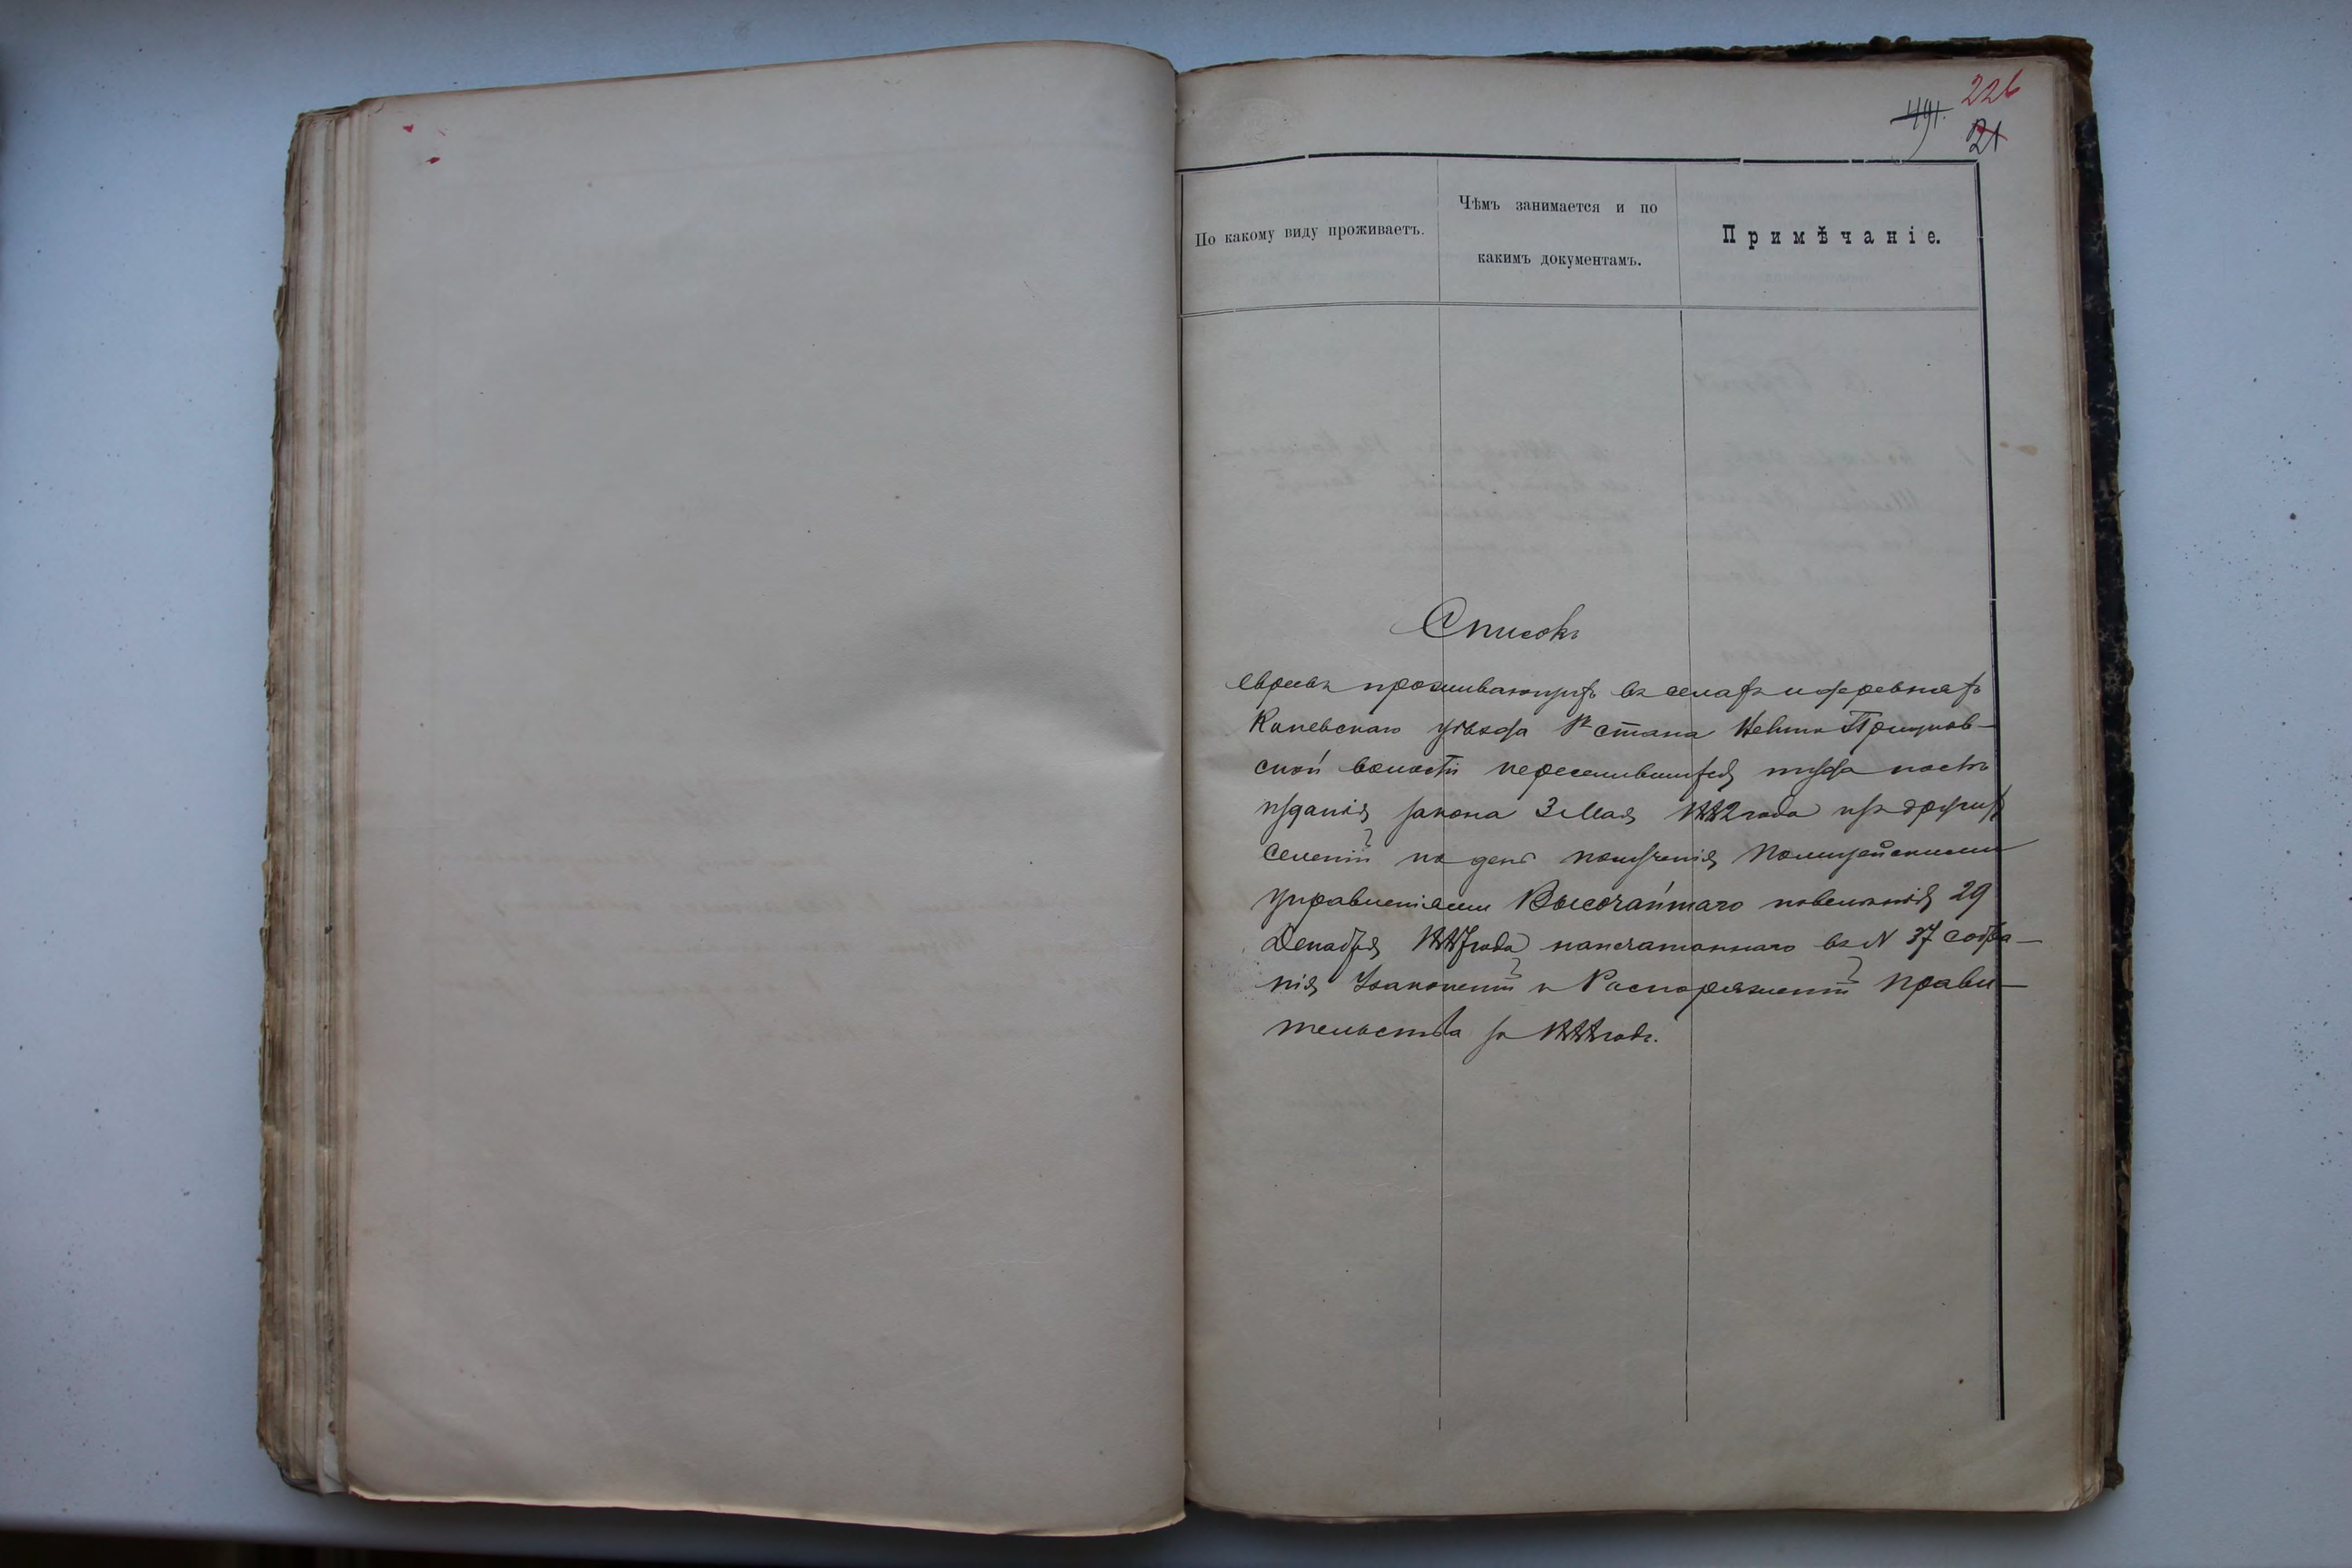 226
491.
21
По какому виду проживаетъ.
Чѣмъ занимается и по
какимъ документамъ.
Примѣчаніе.
Списокъ
евреевъ проживающихъ въ селахъ и деревняхъ
Каневскаго уѣзда 1го стана
ской волости переселившихся туда послѣ
изданія закона 3 Мая 1882 года изъ другихъ
селеній по день полученія Полицейскими
управленіями Высочайшаго повелѣнія 29
Декабря 1887 года напечатаннаго въ № 37 собра-
нія Узаконеній и Распоряженій Прави-
тельства за 1888 годъ.